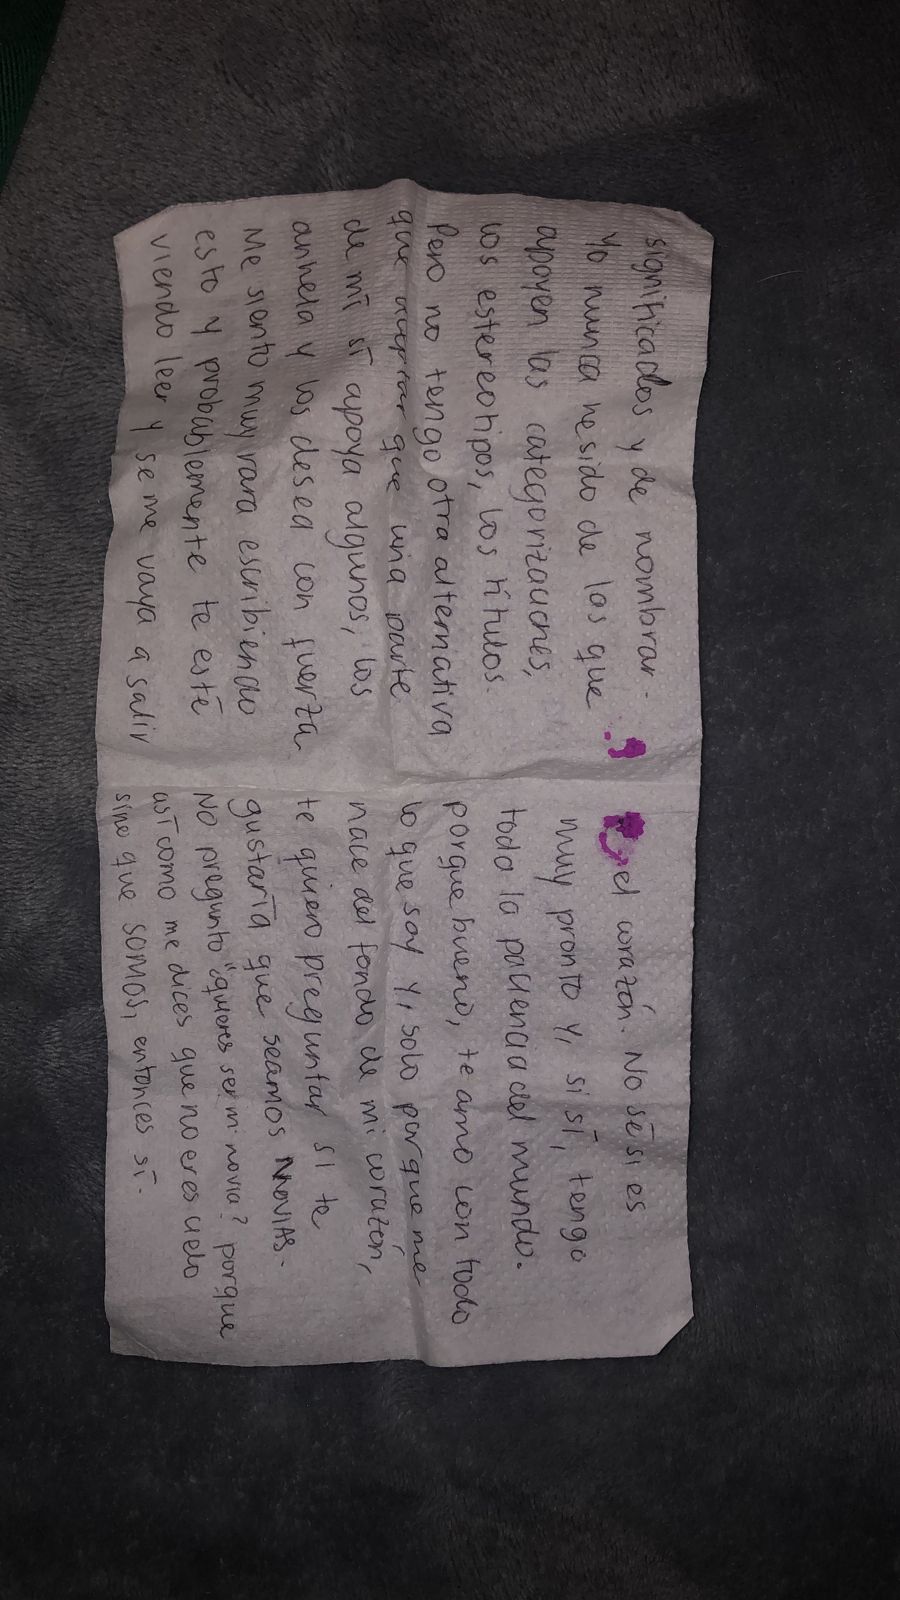 significados y de nombrar.
Yo nunca he sido de las que
apoyen las categorizaciones,
los estereotipos, los títulos.
Pero no tengo otra alternativa
que aceptar que una parte
de mí sí apoya algunos, los
anhela y los desea con fuerza
Me siento muy rara escribiendo
esto y probablemente te esté
viendo leer y se me vaya a salir
el corazón. No sé si es
muy pronto y, si sí, tengo
toda la paciencia del mundo.
Porque bueno, te amo con todo
lo que soy y, solo porque me
nace del fondo de mi corazón,
te quiero preguntar si te
gustaría que seamos NOVIAS.
No pregunto "¿quieres ser mi novia? porque
así como me dices que no eres cielo
sino que SOMOS, entonces sí.